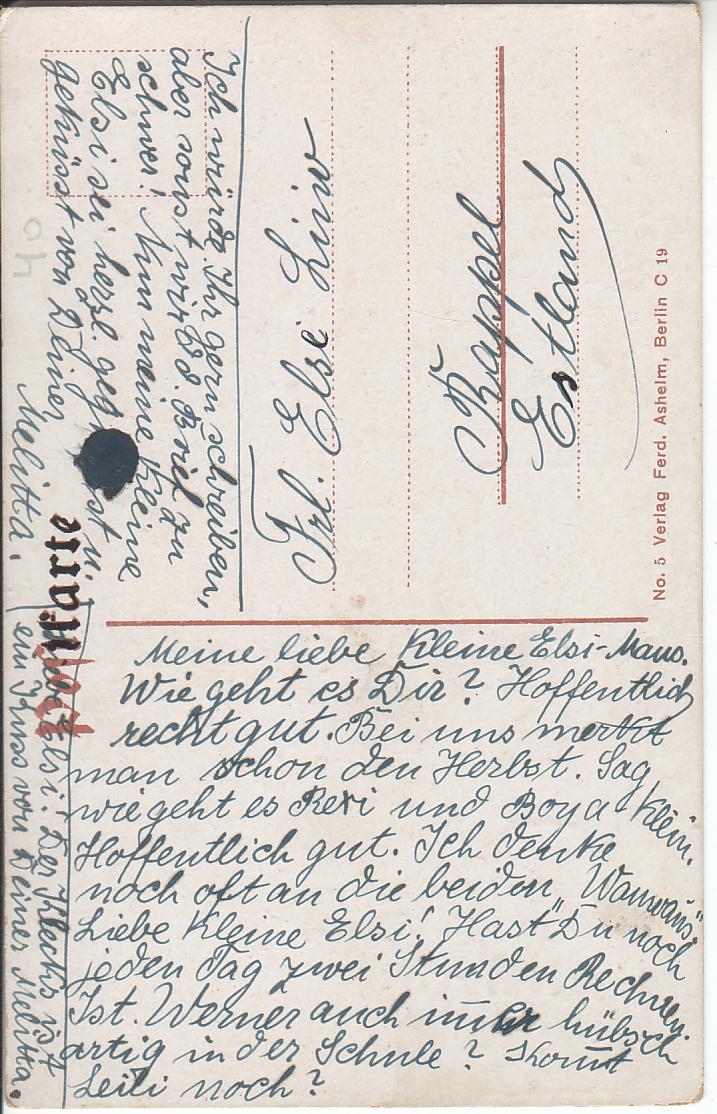 Meine liebe kleine Elsi-Maus.
Wie geht es Dir? Hoffentlich
recht gut. Bei uns merkt
man schon den Herbst. Sag
wie geht es Rexi und Boya klein.
Hoffentlich gut. Ich denke
noch oft an die beiden „Wauwaus“
Liebe kleine Elsi! Hast Du noch
jeden Tag zwei Stunden Rechnen.
Ist Werner auch immer hübsch
artig in der Schule? Komt
Leili noch?
Ich würde Ihr gern schreiben,
aber sonst wird d. Brief zu
schwer! Nun meine kleine
Elsi sei herzl. gegrüsst u.
geküsst von Deiner
Melitta.
Elsi! Der Klecks ist
ein Kuss von Deiner Melitta.
Frl. Elsi Liiw
Rappel
Estland
karte
No. 5 Verlag Ferd. Ashelm, Berlin C 19
40